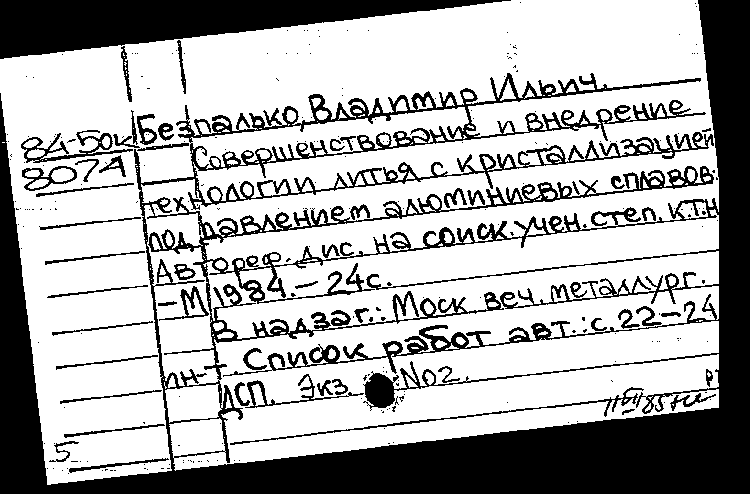 84-50к Безпалько, Владимир Ильич.
807А Совершенствование и внедрение
технологии литья с кристаллизацией
под давлением алюминиевых сплавов:
Автореф. дис. на соиск. учен. степ. к.т.н
-М, 1984.-24с.
В надзаг.: Моск веч. металлург.
ин-т. Список работ авт.: с.22-24
ДСП. Экз. №02.
5